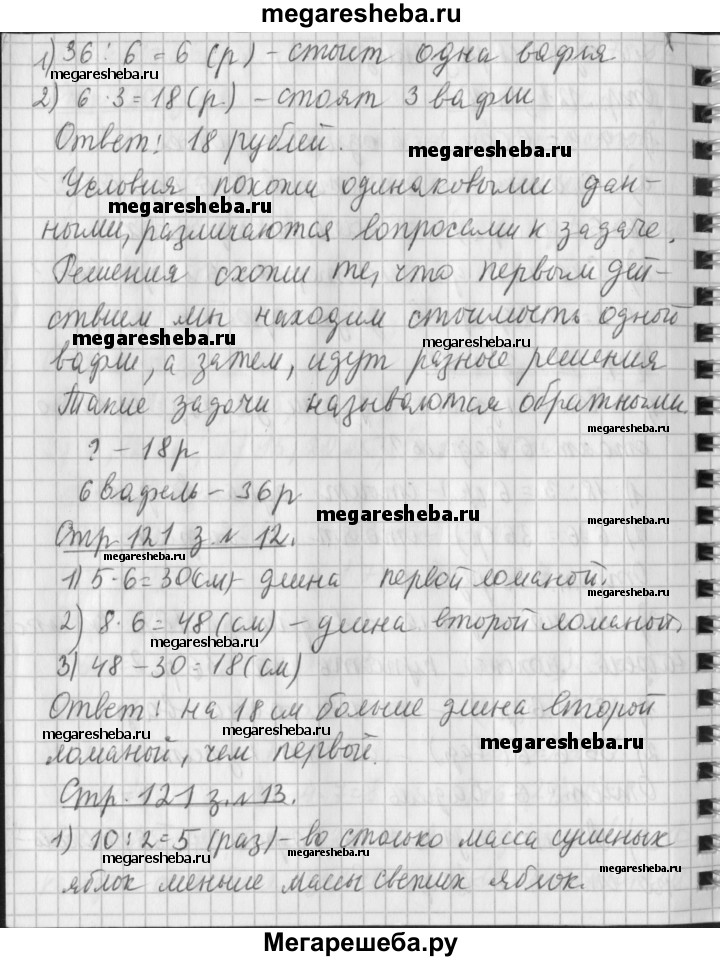 megaresheba.ru
1) 36 : 6 = 6 (р) - стоит одна вафля
megaresheba.ru
2) 6 · 3 = 18 (р.) - стоят 3 вафли
megaresheba.ru
Ответ: 18 рублей.
megaresheba.ru
Условия похожи одинаковыми дан-
megaresheba.ru
ными, различаются вопросами к задаче.
Решения схожи те, что первым дей-
ствием мы находим стоимость одной
megaresheba.ru
megaresheba.ru
вафли, а затем, идут разные решения
Такие задачи называются обратными
megaresheba.ru
? - 18 р
6 вафель - 36 р
megaresheba.ru
Стр 121 з. № 12.
megaresheba.ru
1) 5 · 6 = 30 (см) - длина первой ломаной.
megaresheba.ru
2) 8 · 6 = 48 (см) - длина второй ломаной.
megaresheba.ru
3) 48 - 30 = 18 (см)
Ответ: на 18 см больше длина второй
megaresheba.ru
megaresheba.ru
megaresheba.ru
ломаный, чем первой.
Стр. 121 з. № 13.
1) 10 : 2 = 5 (раз) - во столько масса сушеных
megaresheba.ru
megaresheba.ru
megaresheba.ru
яблок меньше массы свежих яблок.
Мегарешеба.ру